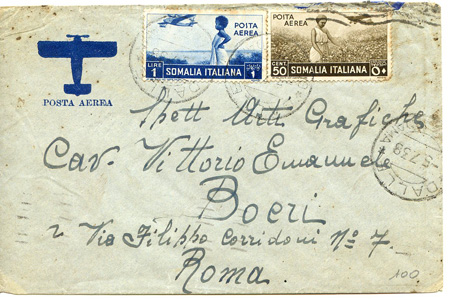 POSTA
AEREA
LIRE
1
SOMALIA ITALIANA
1
POSTA
AEREA
CENT.
50
SOMALIA ITALIANA
POSTA AEREA
Spett Arti Grafiche
Cav. Vittorio Emanuele
Boeri
Via Filippo Corridoni Nº 7
Roma.
5.7.38
100